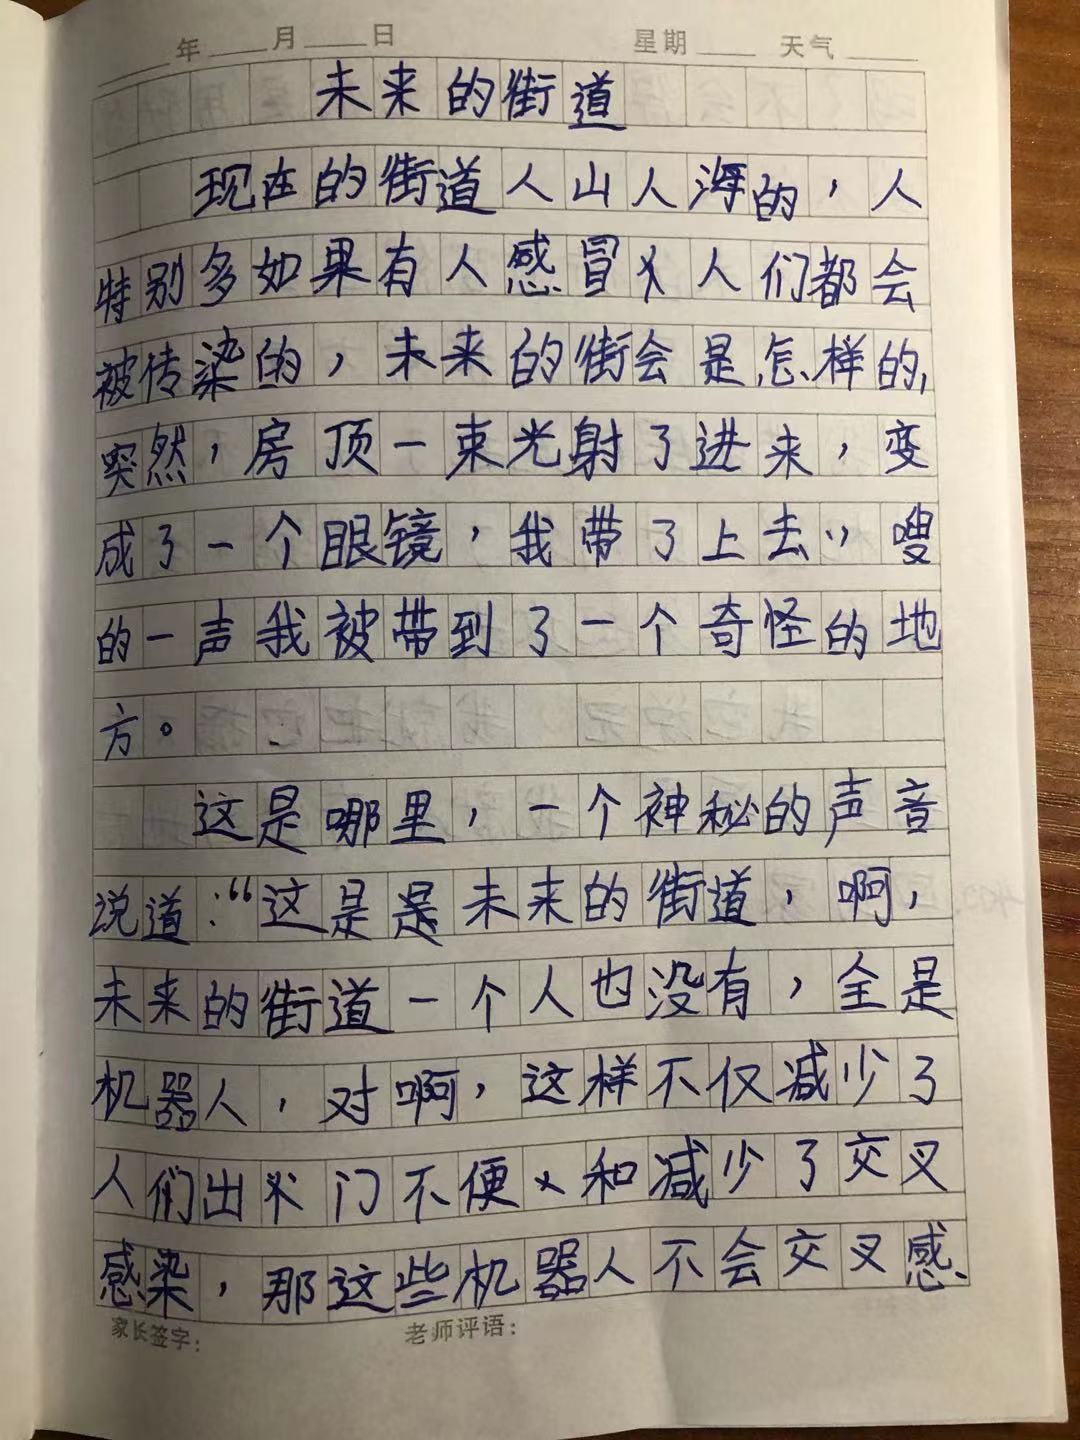 年 月 日 星期 天气
未来的街道
现在的街道人山人海的，人
特别多如果有人感冒人们都会
被传染的，未来的街会是怎样的，
突然，房顶一束光射了进来，变
成了一个眼镜，我带了上去，嗖
的一声我被带到了一个奇怪的地
方。
这是哪里，一个神秘的声音
说道：“这是是未来的街道，啊，
未来的街道一个人也没有，全是
机器人，对啊，这样不仅减少了
人们出门不便和减少了交叉
感染，那这些机器人不会交叉感
家长签字： 老师评语：